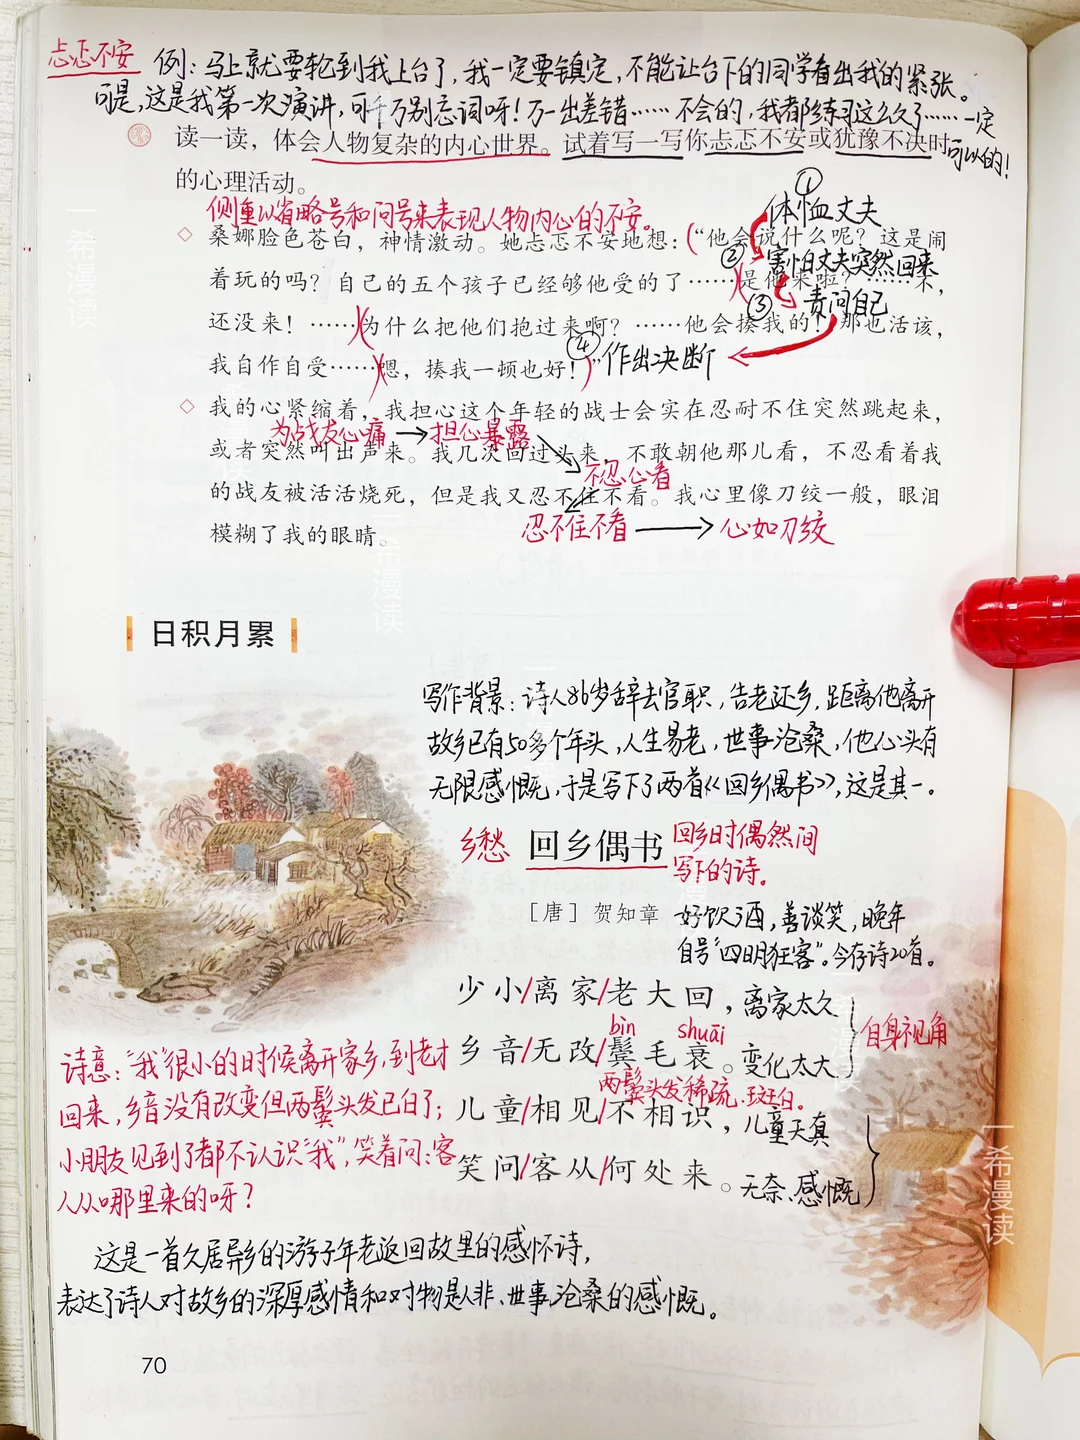 忐忑不安 例：马上就要轮到我上台了，我一定要镇定，不能让台下的同学看出我的紧张。
可是，这是我第一次演讲，可千万别忘词呀！万一出差错……不会的，我都练习这么久了……一定
可以的！
读一读，体会人物复杂的内心世界。试着写一写你忐忑不安或犹豫不决时
的心理活动。
侧重以省略号和问号来表现人物内心的不安。
①体恤丈夫
桑娜脸色苍白，神情激动。她忐忑不安地想：“他会说什么呢？这是闹
②害怕丈夫突然回来
着玩的吗？自己的五个孩子已经够他受的了……是他来啦？……不，
③责问自己
还没来！……为什么把他们抱过来啊？……他会揍我的！那也活该，
我自作自受……嗯，揍我一顿也好！”
④作出决断
我的心紧缩着，我担心这个年轻的战士会实在忍耐不住突然跳起来，
为战友心痛→担心暴露
或者突然叫出声来。我几次回过头来，不敢朝他那儿看，不忍看着我
不忍心看
的战友被活活烧死，但是我又忍不住不看。我心里像刀绞一般，眼泪
忍不住不看→心如刀绞
模糊了我的眼睛。
日积月累
写作背景：诗人86岁辞去官职，告老还乡，距离他离开
故乡已有50多个年头，人生易老，世事沧桑，他心头有
无限感慨，于是写下了两首《回乡偶书》，这是其一。
乡愁 回乡偶书 回乡时偶然间
写下的诗。
［唐］贺知章 好饮酒，善谈笑，晚年
自号“四明狂客”。今存诗20首。
少小/离家/老大回，离家太久
自身视角
bìn shuāi
乡音/无改/鬓毛衰。变化太大
两鬓头发稀疏、斑白。
儿童/相见/不相识，儿童天真
笑问/客从/何处来。无奈、感慨
诗意：“我”很小的时候离开家乡，到老才
回来，乡音没有改变但两鬓头发已白了；
小朋友见到了都不认识“我”，笑着问：客
人从哪里来的呀？
这是一首久居异乡的游子年老返回故里的感怀诗，
表达了诗人对故乡的深厚感情和对物是人非、世事沧桑的感慨。
70
一希漫读
一希漫读
一希漫读